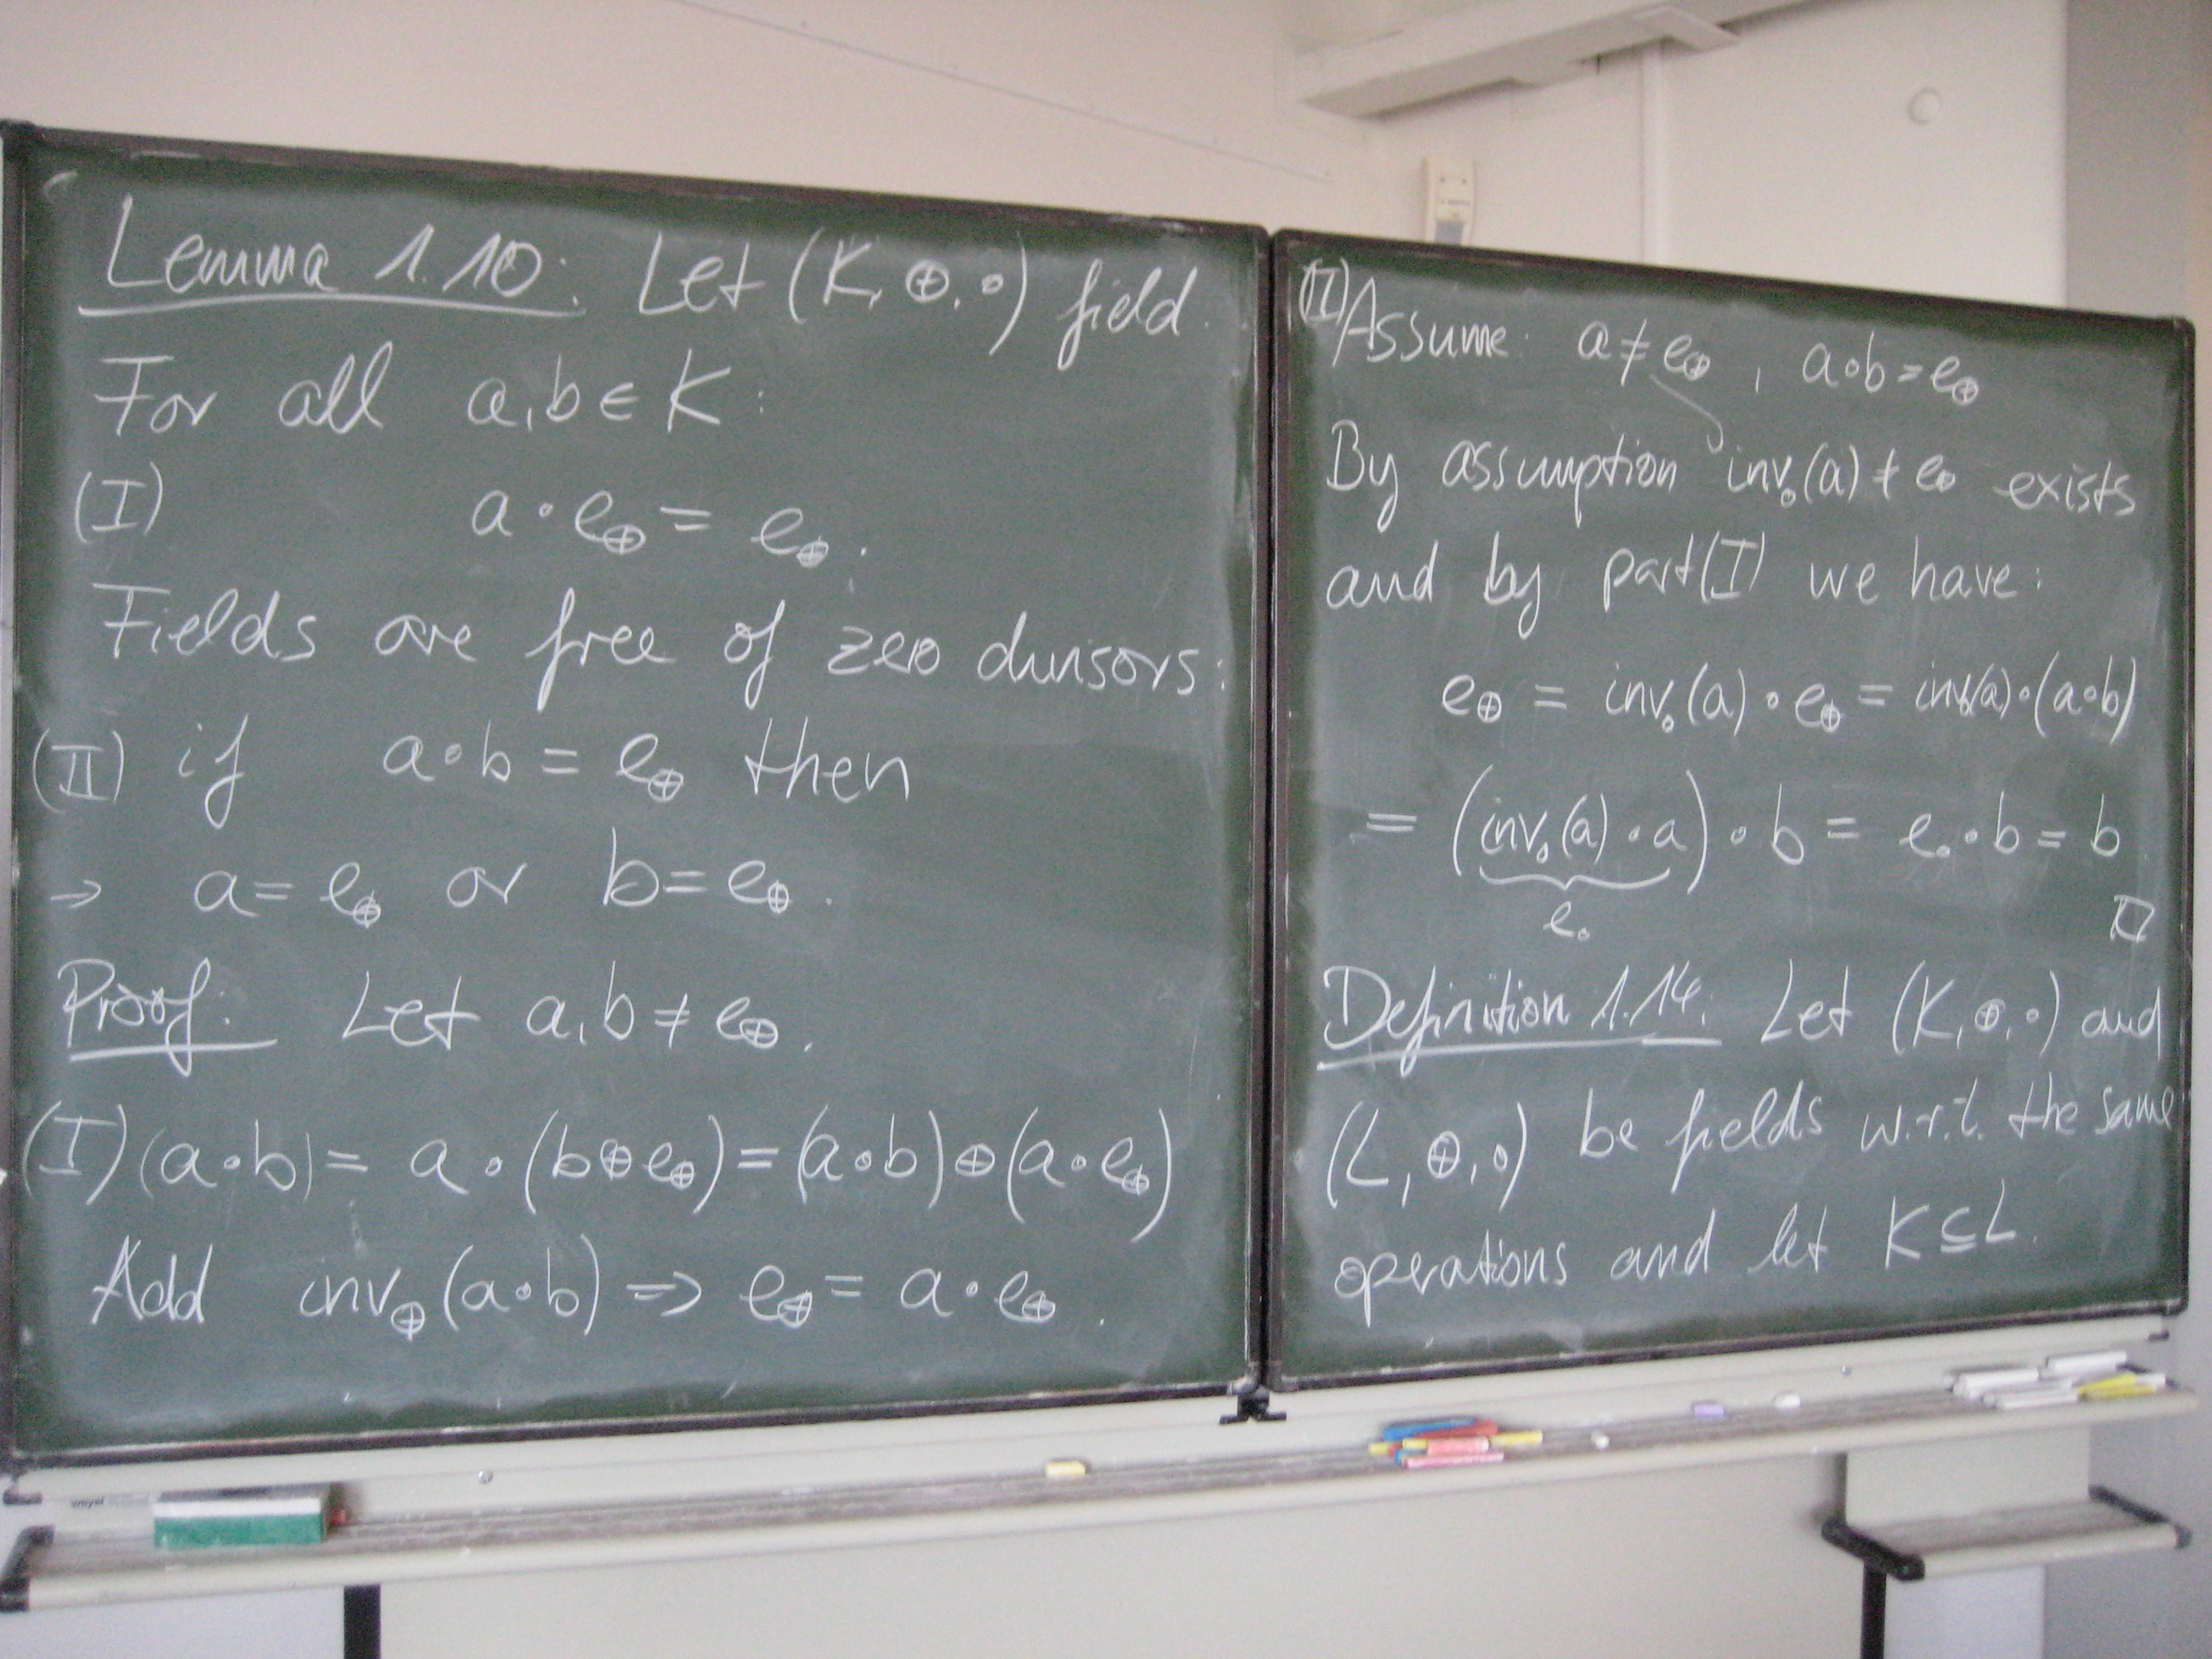 Lemma 1.10: Let (K, ⊕, ∘) field.
For all a, b ∈ K:
(I) a ∘ e⊕ = e⊕.
Fields are free of zero divisors:
(II) if a ∘ b = e⊕ then
→ a = e⊕ or b = e⊕.
Proof: Let a, b ≠ e⊕.
(I) (a ∘ b) = a ∘ (b ⊕ e⊕) = (a ∘ b) ⊕ (a ∘ e⊕)
Add inv⊕(a ∘ b) ⇒ e⊕ = a ∘ e⊕.
(II) Assume: a ≠ e⊕, a ∘ b = e⊕
By assumption inv∘(a) ≠ e⊕ exists
and by part (I) we have:
e⊕ = inv∘(a) ∘ e⊕ = inv∘(a) ∘ (a ∘ b)
= (inv∘(a) ∘ a) ∘ b = e∘ ∘ b = b
e∘ □
Definition 1.14: Let (K, ⊕, ∘) and
(L, ⊕, ∘) be fields w.r.t. the same
operations and let K ⊆ L.